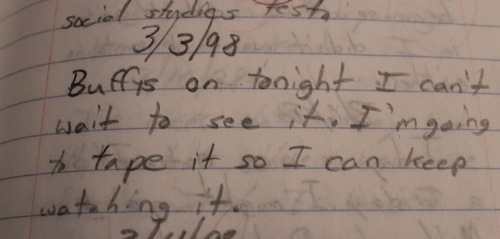 social studies test.
3/3/98
Buffys on tonight I can't
wait to see it. I'm going
to tape it so I can keep
watching it.